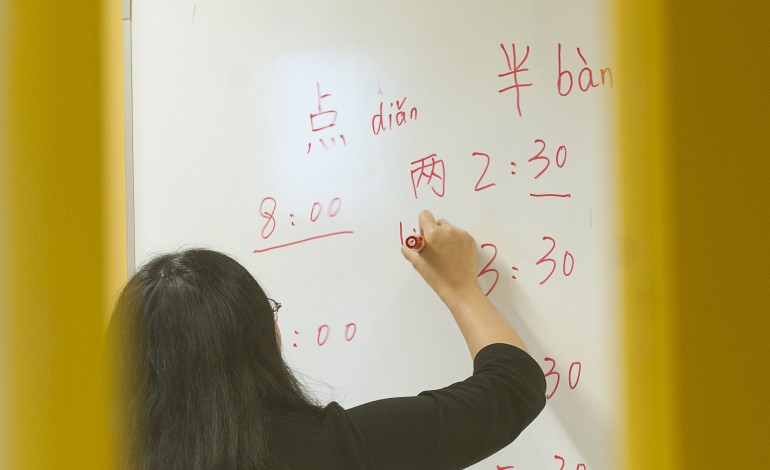 点 diǎn
半 bàn
两 2:30
8:00
3:30
:00
30